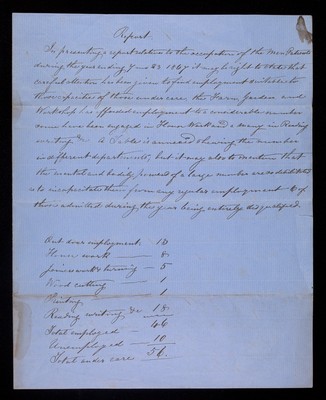 Report
In presenting a report relative to the occupation of the Men Patients
during the year ending 3 mo 23 1847 it may be right to state that
careful attention has been given to find employment suitable to
the capacities of those under care the Farm Garden and
Workshop has afforded employment to a considerable number
some have been engaged in House Work and a many in Reading
writing &c A Table is annexed shewing the number
in different departments, but it may also be mention that
the mental and bodily powers of a large number are so debilitated
as to incapacitate them from any regular employment 6 of
those admitted during the year being entirely disqualified.
Out door employment 13
House work — 8
Joiners work & turning — 5
Wood cutting — 1
Printing, 1
Reading writing, &c 18
Total employed — 46
Unemployed — 10
Total under care — 56.